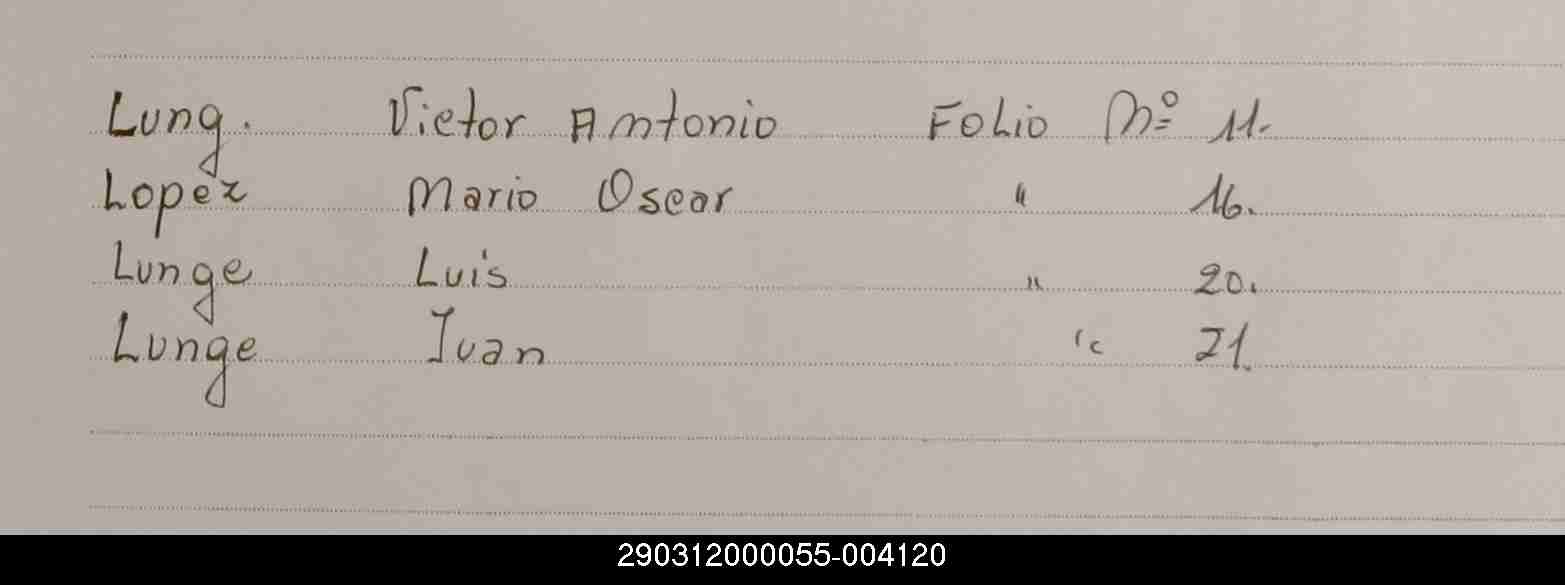 Lung. Victor Antonio Folio Nº 11.
Lopez Mario Oscar " 16.
Lunge Luis " 20.
Lunge Juan " 21.
290312000055-004120